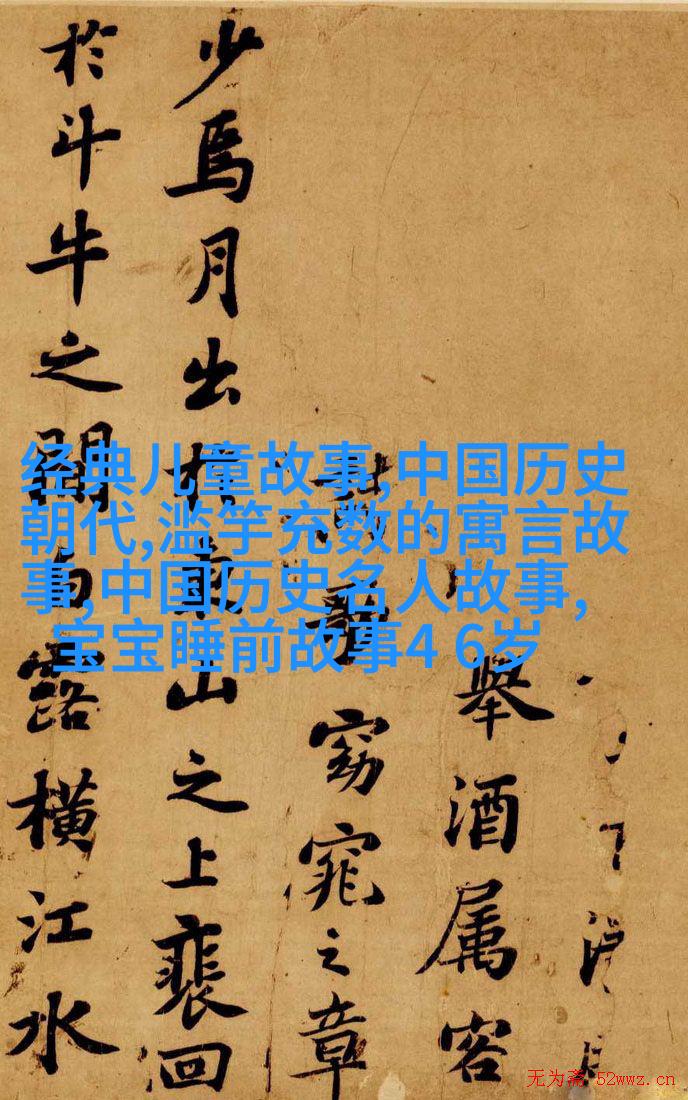 舉酒属客
歌窈窕之章
少焉月出於東山之上裵回
於斗牛之間白露橫江水
经典儿童故事,中国历史
朝代,滥竽充数的寓言故
事,中国历史名人故事,
宝宝睡前故事4 6岁
无为斋 52wwz.cn